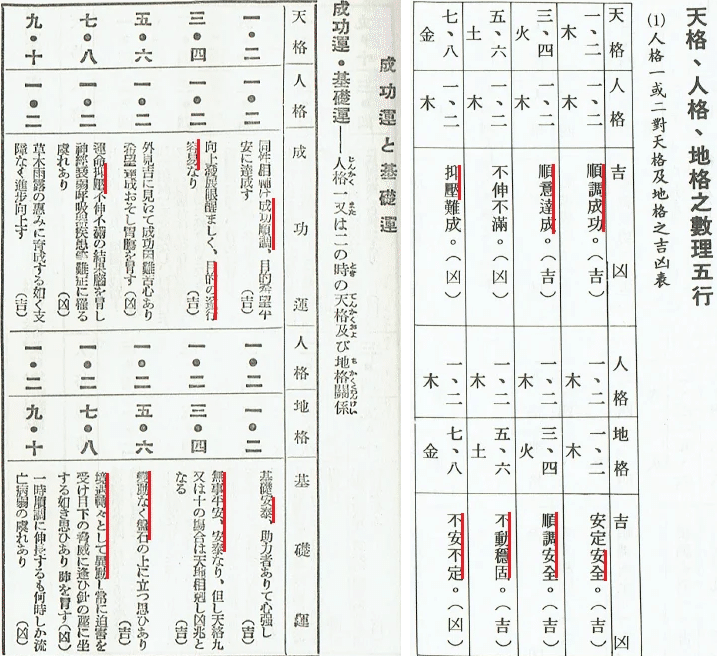 天格、人格、地格之數理五行
(1)人格一或二對天格及地格之吉凶表
天格 人格 吉凶 人格 地格 吉凶
一、二 木 一、二 木 順調成功。(吉) 一、二 木 一、二 木 安定安全。(吉)
三、四 火 一、二 木 順意達成。(吉) 一、二 木 三、四 火 順調安全。(吉)
五、六 土 一、二 木 不伸不滿。(凶) 一、二 木 五、六 土 不動穩固。(吉)
七、八 金 一、二 木 抑壓難成。(凶) 一、二 木 七、八 金 不安不定。(凶)
成功運と基礎運
成功運・基礎運——人格一又は二の時の天格及び地格關係
天格 人格 成功運 人格 地格 基礎運
一・二 一・二 同性相輔け成功順調、目的希望平
安に達成す (吉)
一・二 一・二 基礎安泰、助力者ありて心強し
(吉)
三・四 一・二 向上發展眼醒ましく、目的の達行
容易なり (吉)
一・二 三・四 無事平安、安泰なり、但し天格九
又は十の場合は天地相剋し凶兆と
なる (吉)
五・六 一・二 外見吉に見いて成功困難苦心あり
希望達成おそし胃腸を冒す (凶)
一・二 五・六 變動なく盤石の上に立つ思ひあり
(吉)
七・八 一・二 運命抑壓不伸不滿の結果腦を冒し
神經衰弱呼吸器疾患等難症に罹る
虞れあり (凶)
一・二 七・八 境遇轉々として異動し常に迫害を
受け目下の脅威に逢ひ針の莚に坐
する如き思ひあり 肺を冒す (凶)
九・十 一・二 草木雨露の惠みに育成する如く支
障なく進步向上す (吉)
一・二 九・十 一時順調に伸長するも何時しか流
亡病弱の虞れあり (凶)